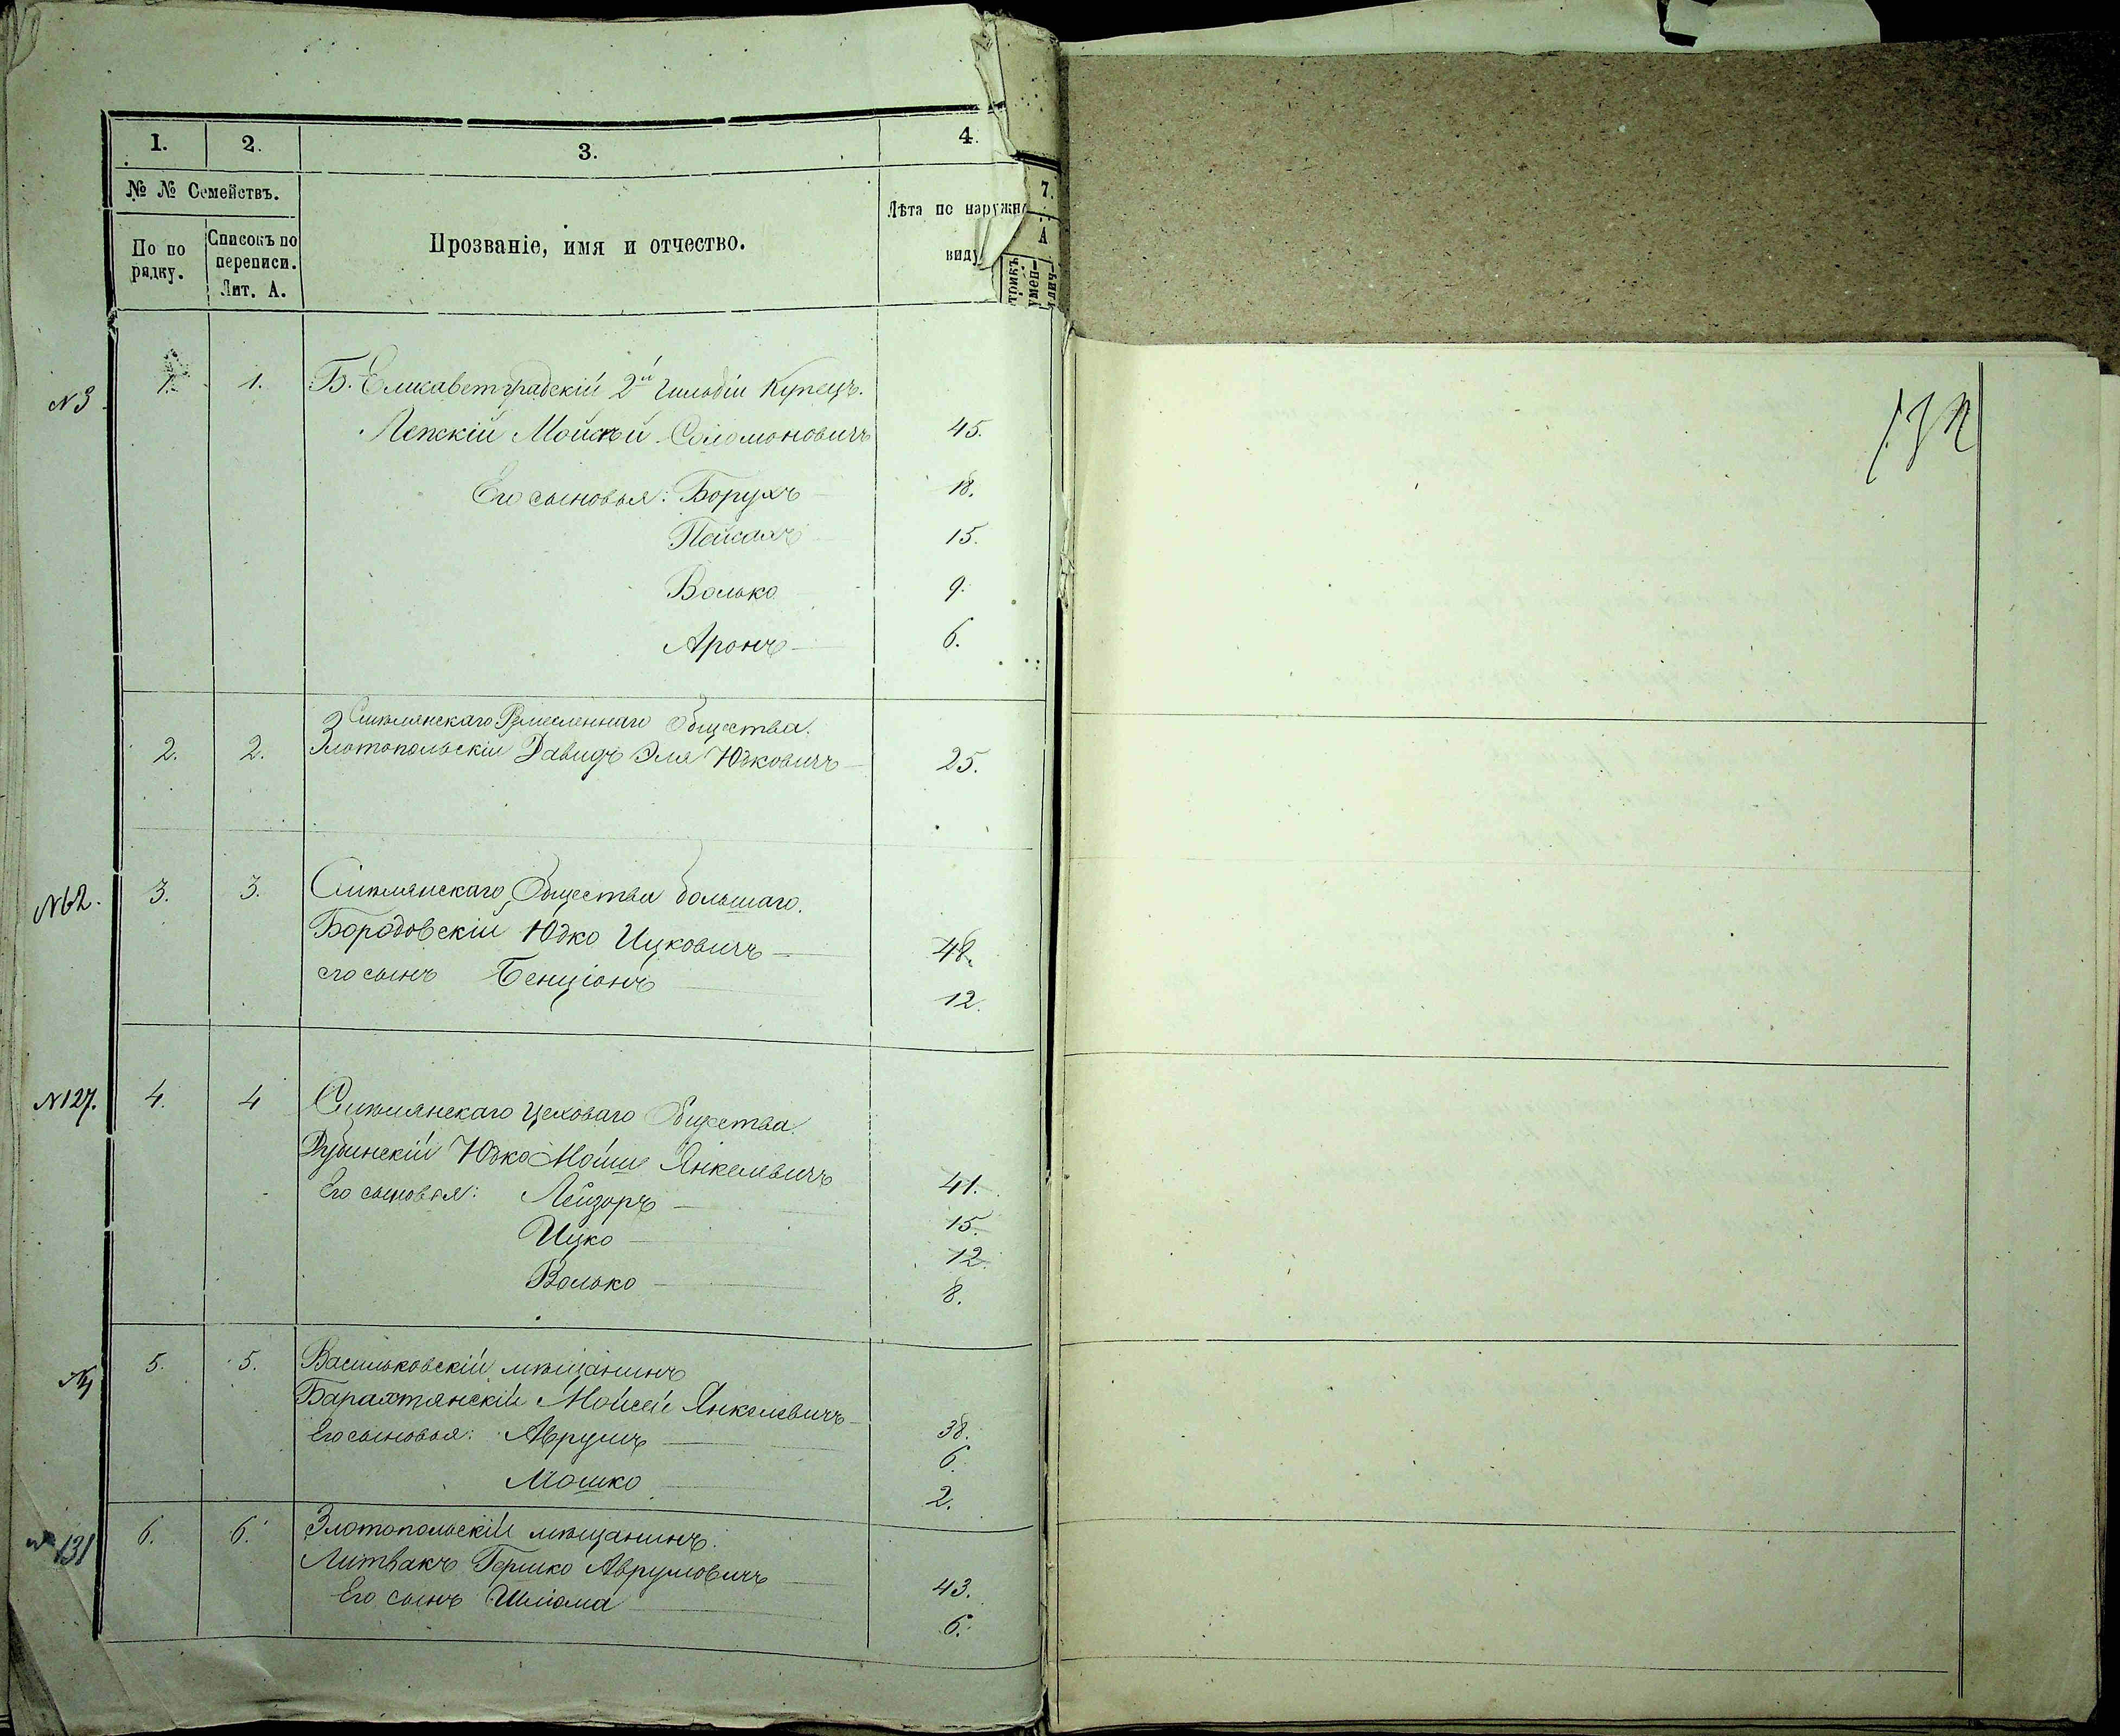 1. 2. 3. 4.
7.
№ № Семействъ.
По по рядку.
Списокъ по переписи. Лит. А.
Прозваніе, имя и отчество.
Лѣта по наружн
виду
А
№3 1. 1. Б. Елисаветградскій 2й Гильдіи Купецъ.
Моисей Соломоновичъ 45.
Его сыновья: Борухъ 18.
Пейсахъ 15.
Волько 9.
Аронъ 6.
Смѣлянскаго Ремесленнаго Общества.
2. 2. Златопольскій Давидъ Эля Юдковичъ 25.
№62. 3. 3. Смѣлянскаго Общества большаго.
Бородовскій Юдко Ицковичъ 48.
его сынъ Бенціонъ 12.
№127. 4. 4 Смѣлянскаго Цеховаго Общества.
Дубинскій Юдко Мошие Янкелевичъ 41.
Его сыновья: Лейзоръ 15.
Ицко 12.
Волько 8.
5. 5. Васильковскій мѣщанинъ
Барахтянскій Моисей Янкелевичъ 38.
Его сыновья: Аврумъ 6.
Мошко 2.
№131 6. 6. Златопольскій мѣщанинъ.
Литвакъ Гершко Аврумовичъ 43.
Его сынъ Шліома 6.